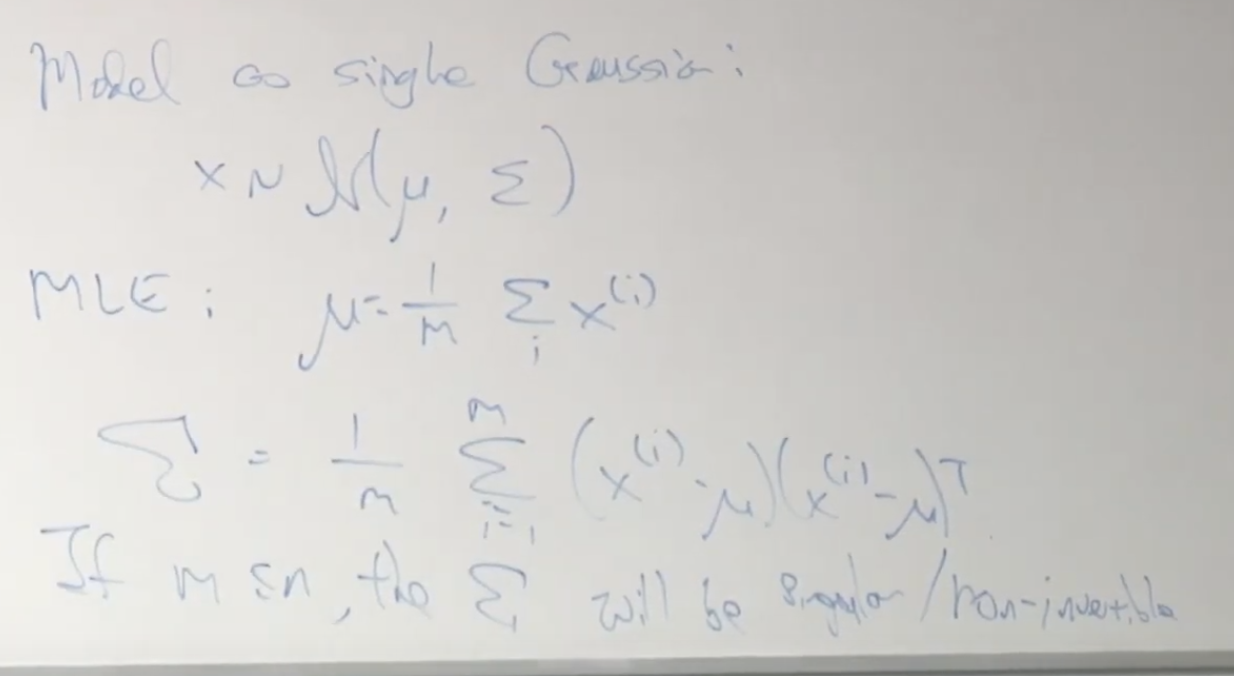 Model as single Gaussian:
x ~ N(μ, Σ)
MLE: μ = 1/m Σ_i x^(i)
Σ = 1/m Σ_{i=1}^m (x^(i) - μ)(x^(i) - μ)^T
If m ≤ n, the Σ will be singular/non-invertible